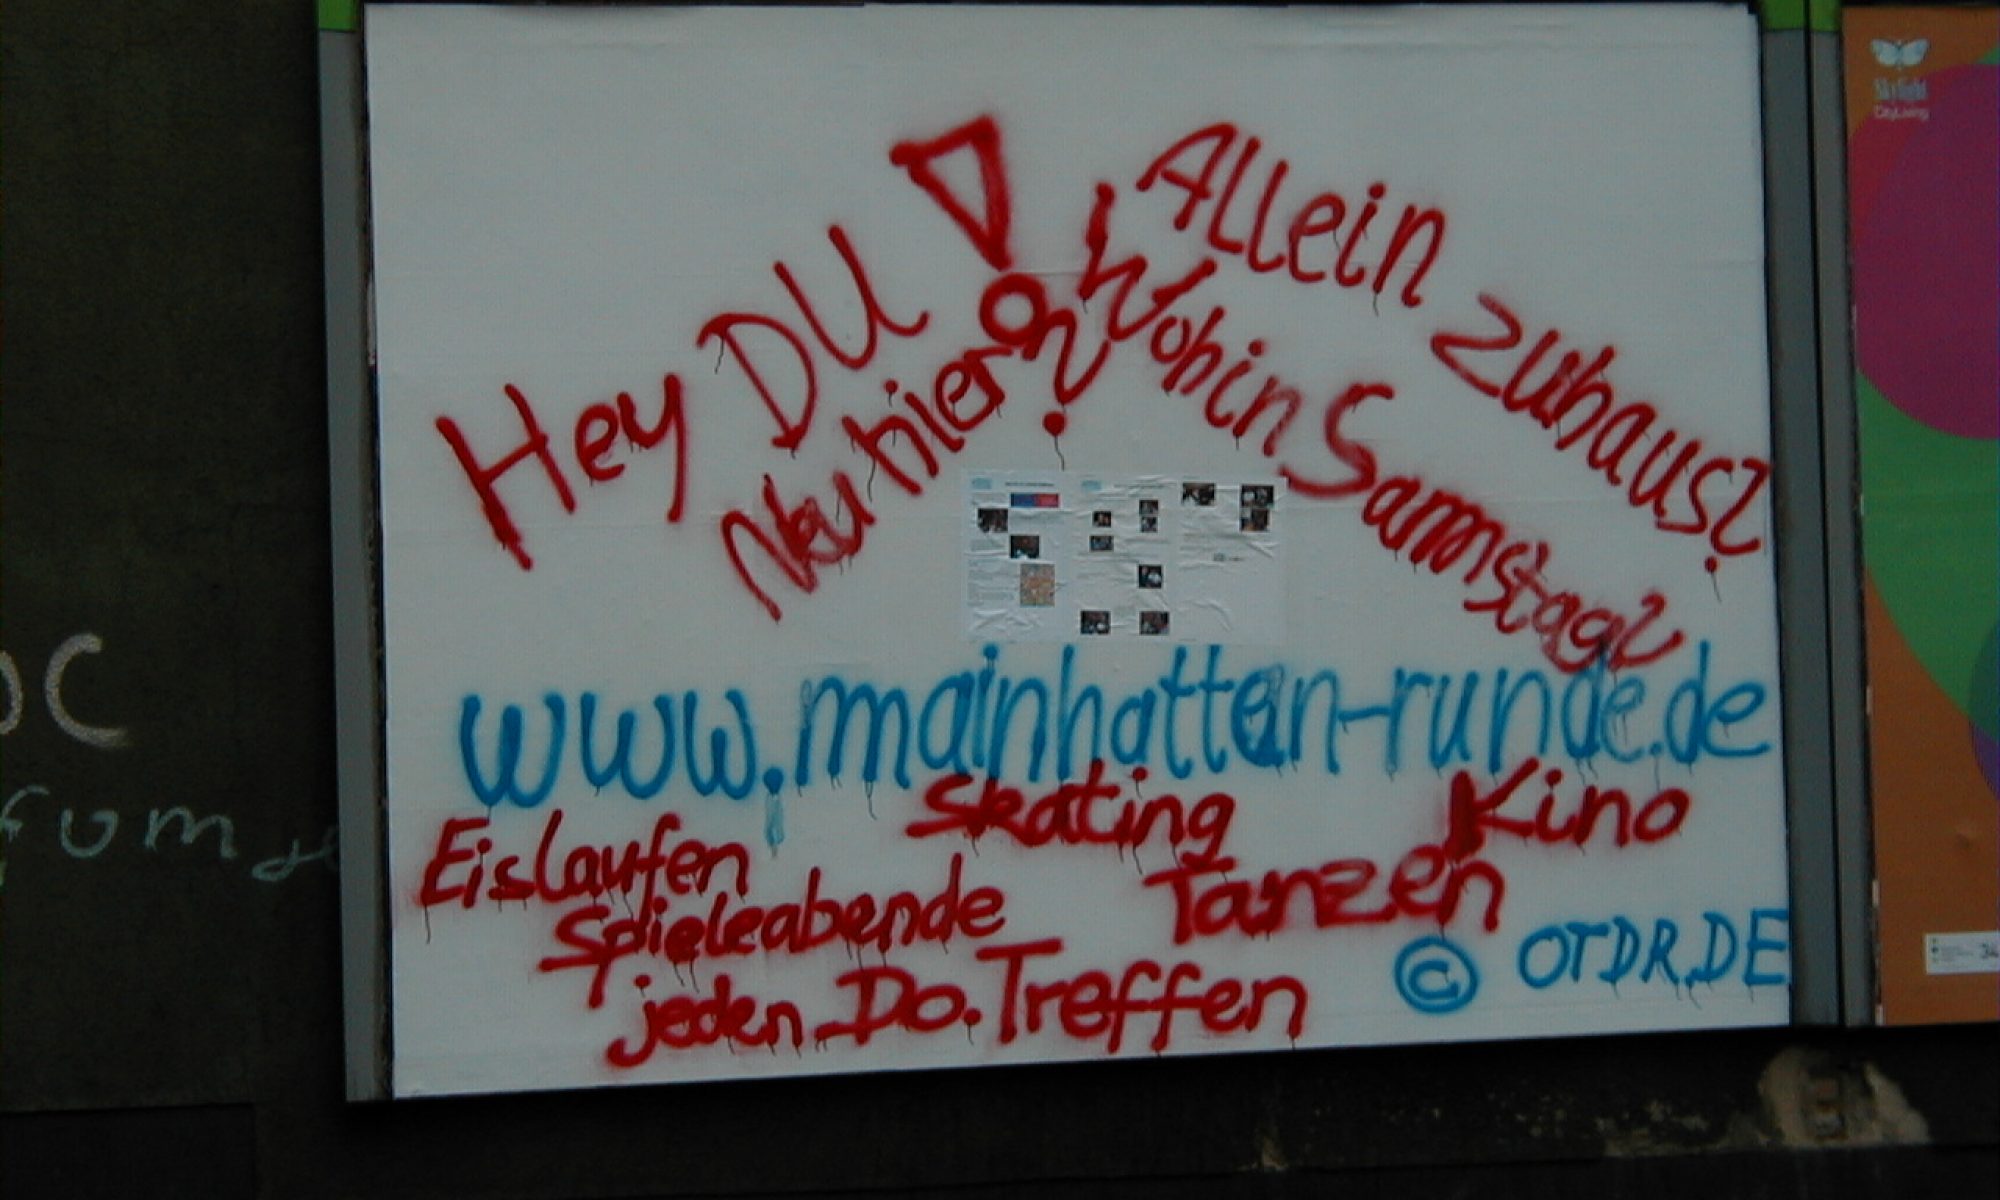 Hey DU!
Neu hier?
Allein zuhaus?
Wohin Samstag?
www.mainhattan-runde.de
Eislaufen Skating Kino
Spieleabende Tanzen
jeden Do. Treffen
© OTDR.DE
Skylight
CityLiving